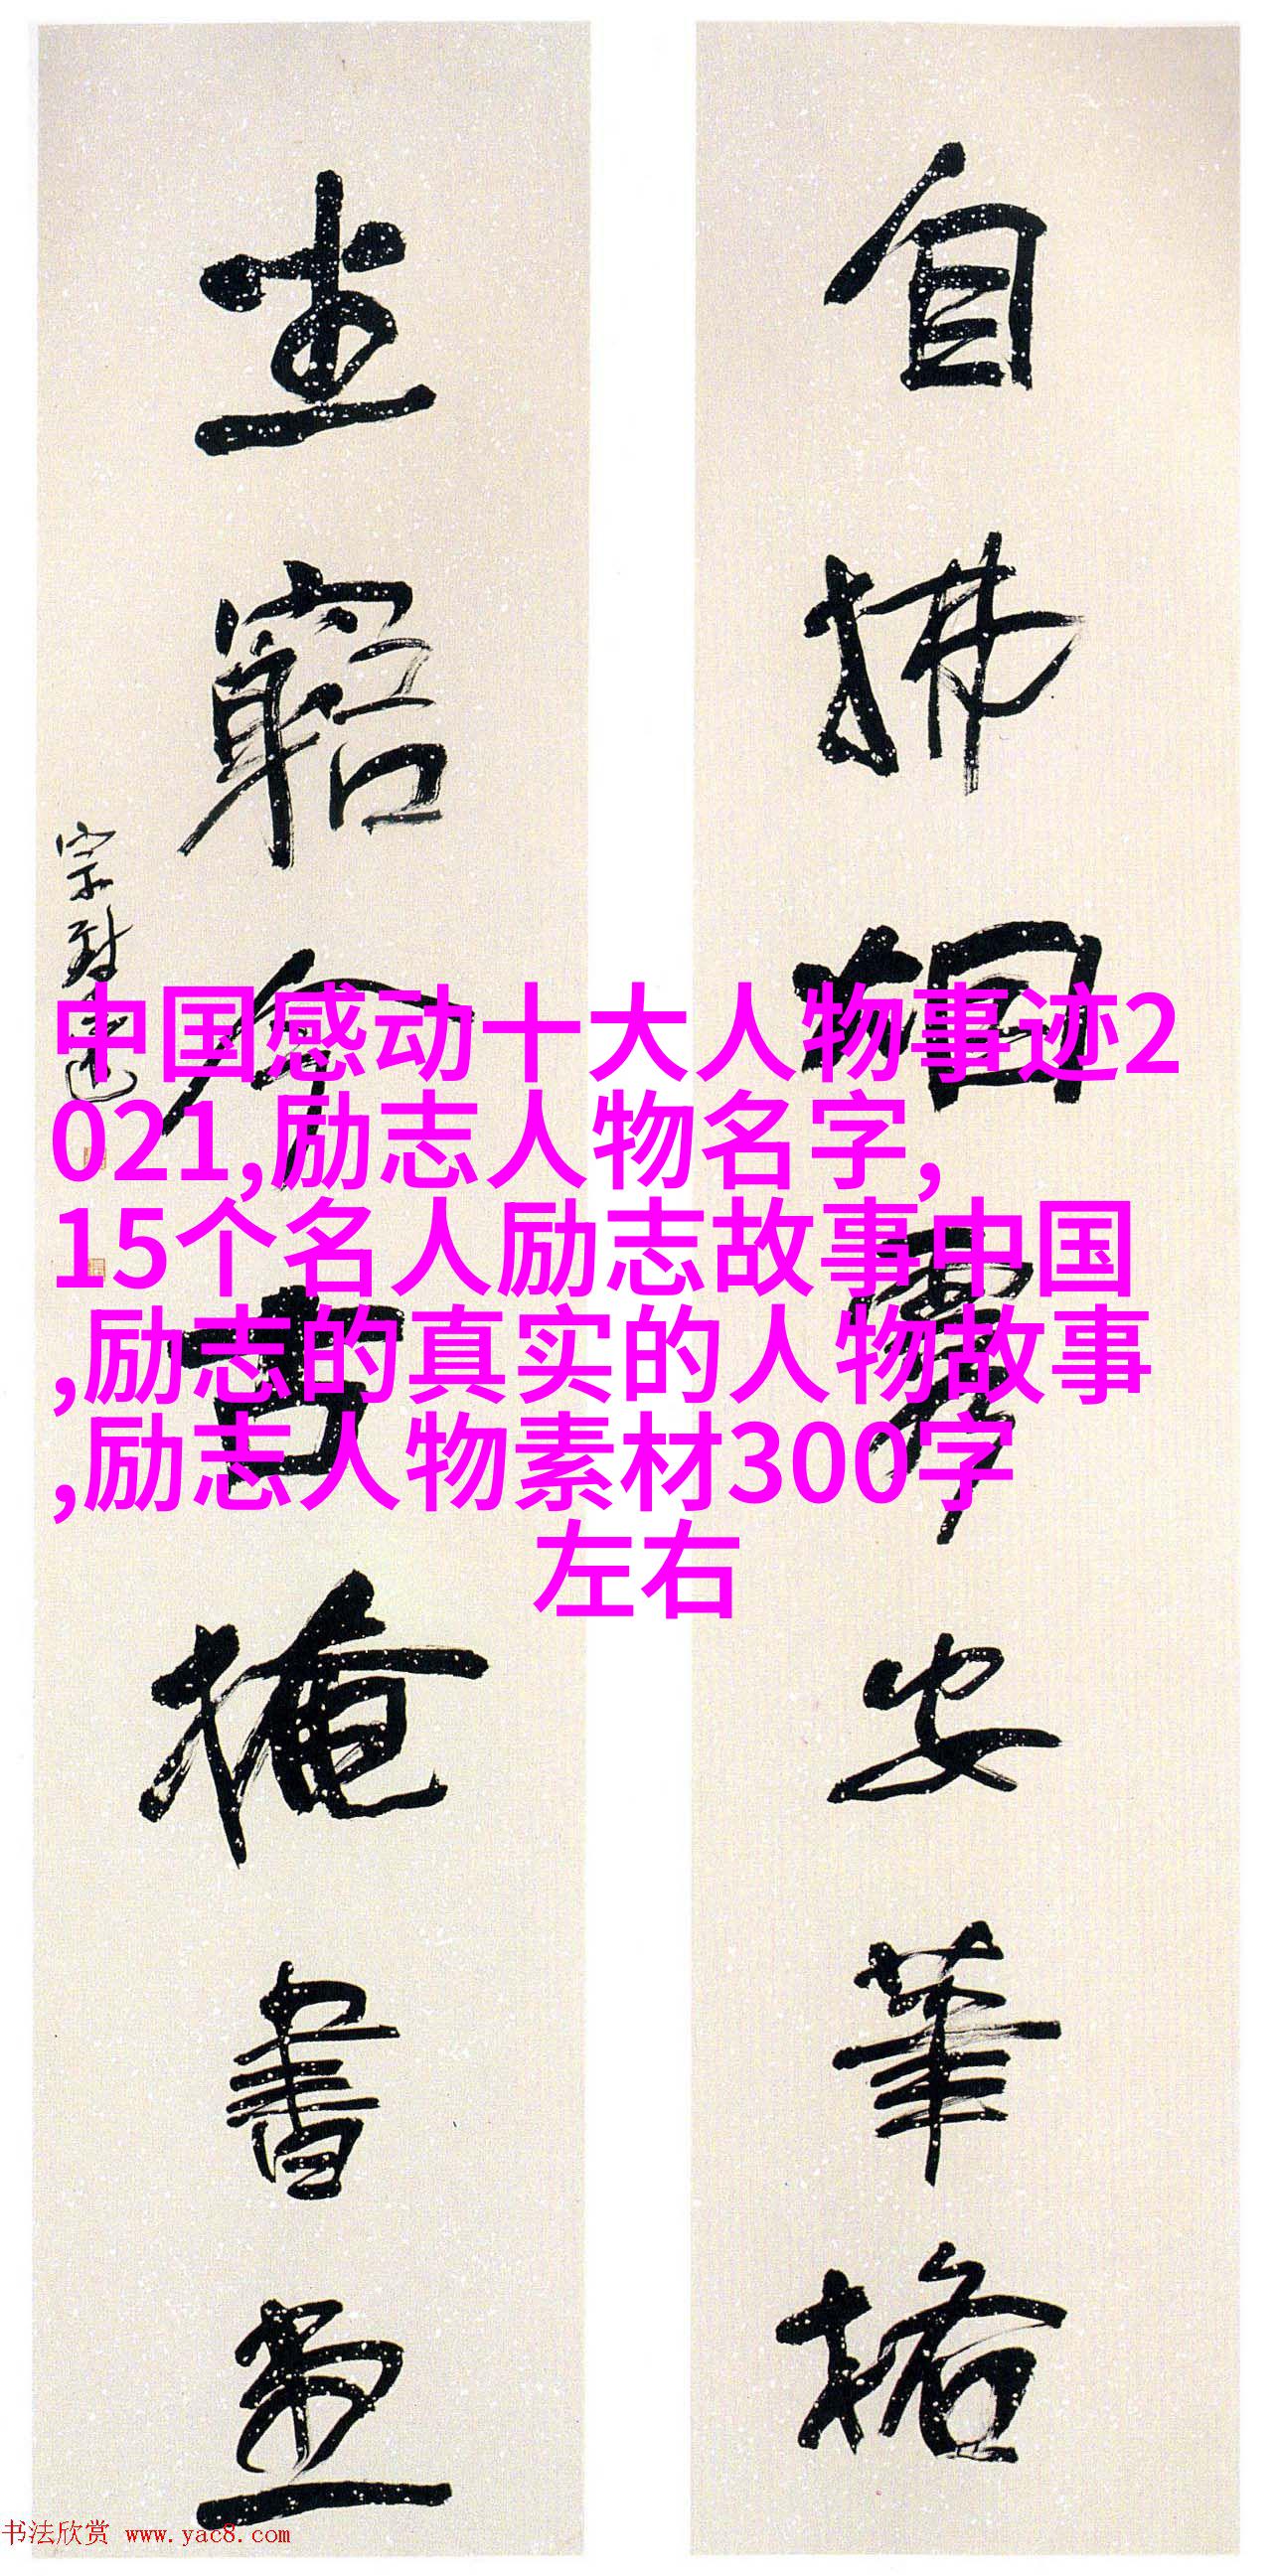 自拂烟霞安笔格
坐穷今古掩书堂
中国感动十大人物事迹2
021,励志人物名字,
15个名人励志故事中国
,励志的真实的人物故事
,励志人物素材300字
左右
书法欣赏 www.yac8.com